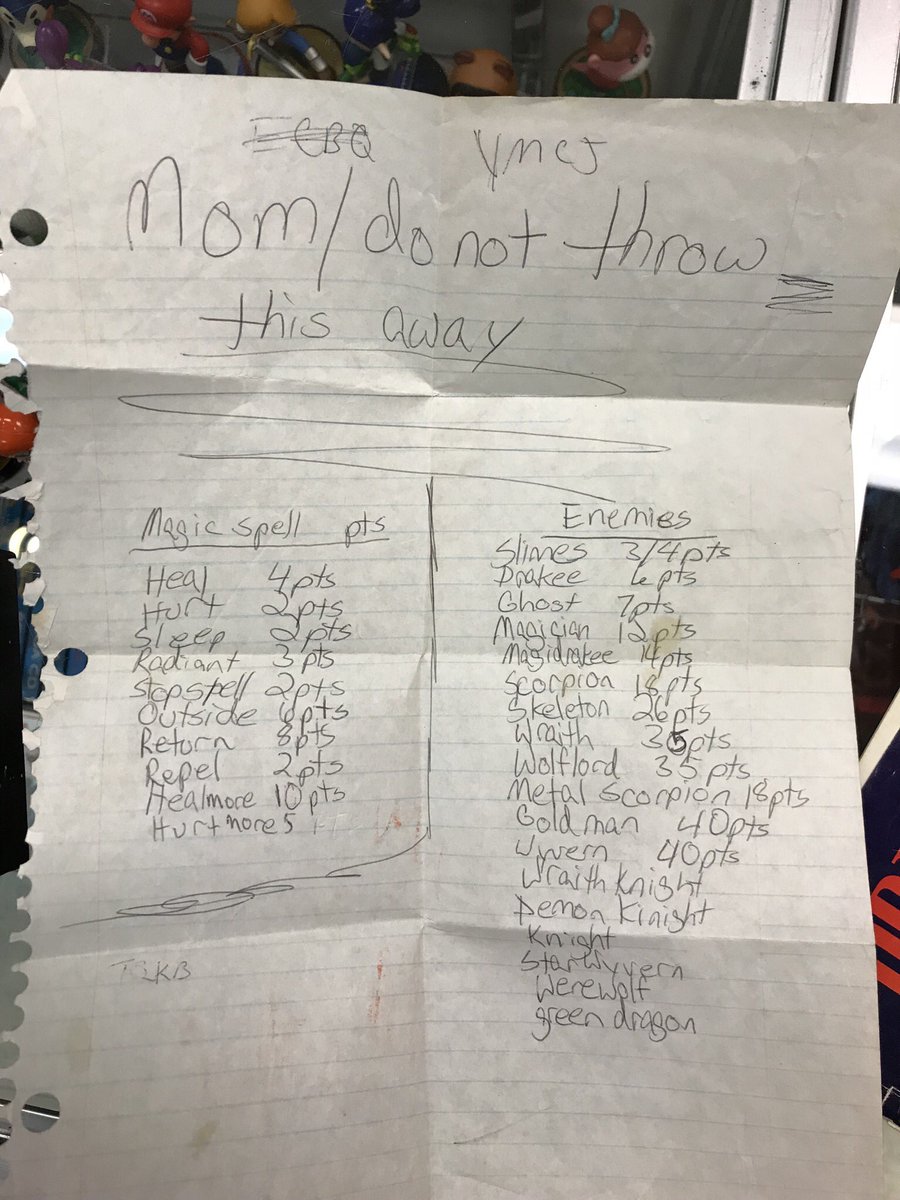 YMCJ
Mom/do not throw
this away
Magic spell pts
Heal 4pts
Hurt 2pts
Sleep 2pts
Radiant 3pts
Stopspell 2pts
Outside 6pts
Return 8pts
Repel 2pts
Healmore 10pts
Hurtmore 5
Enemies
Slimes 3/4pts
Drakee 6pts
Ghost 7pts
Magician 12pts
Magidrakee 14pts
Scorpion 18pts
Skeleton 26pts
Wraith 35pts
Wolflord 35pts
Metal Scorpion 18pts
Goldman 40pts
Wyvern 40pts
Wraith Knight
Demon Kinight
Knight
Starwyvern
Werewolf
green dragon